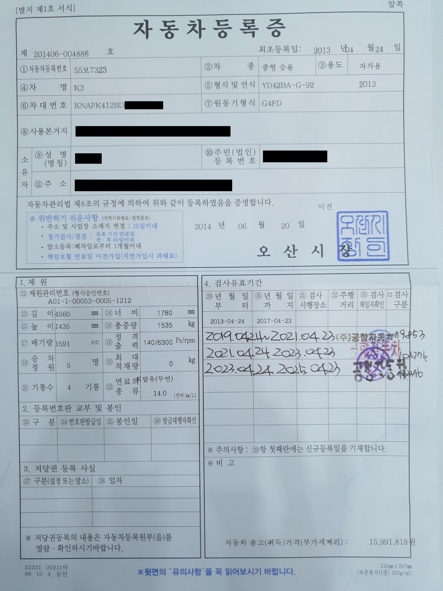 [별지 제1호 서식]
앞쪽
자동차등록증
제 201406-004886 호
최초등록일: 2013 년 04 월 24 일
①자동차등록번호 55보7323 ②차 종 중형 승용 ③용도 자가용
④차 명 K3 ⑤형식 및 연식 YD42BA-G-92 2013
⑥차대번호 KNAFK412BD ⑦원동기형식 G4FD
⑧사용본거지
소유자
⑨성명(명칭) ⑩주민(법인)등록번호
⑪주 소
자동차관리법 제8조의 규정에 의하여 위와 같이 등록하였음을 증명합니다.
이전
※ 위반하기 쉬운사항
• 주소 및 사업장 소재지 변경 : 15일이내
• 말소등록:폐차일로부터 1개월이내
2014 년 06 월 20 일
오산시장
1. 제 원
⑫제원관리번호 (형식승인번호)
A01-1-00053-0006-1212
⑬길 이 4560 mm ⑭너 비 1780 mm
⑮높 이 1435 mm ⑯총중량 1535 kg
⑰배기량 1591 cc ⑱정격출력 140/6300 Ps/rpm
⑲승차정원 5 명 ⑳최대적재량 0 kg
㉑기통수 4 기통 ㉒연료의종류 휘발유(무연)
14.0
2. 등록번호판 교부 및 봉인
㉓구 분 ㉔번호판발급일 ㉕봉인일 ㉖발급대행자확인
3. 저당권 등록 사실
㉗구분(설정 또는 말소) ㉘일자
※ 저당권등록의 내용은 자동차등록원부(을)를
열람·확인하시기바랍니다.
4. 검사유효기간
㉙년 월 일부터 ㉚년 월 일까지 ㉛검사시행장소 ㉜주행거리 ㉝검사책임자확인 검사구분
2013-04-24 2017-04-23
2019.04.24. 2021.04.23 (주)공항자동차
2021.04.24 2023.04.23
2023.04.24 2025.04.23
※ 주의사항: ㉙항 첫째란에는 신규등록일을 기재합니다.
※ 비 고
자동차 출고(취득)가격(부가세제외): 15,991,818원
※뒷면의 "유의사항"을 꼭 읽어보시기 바랍니다.